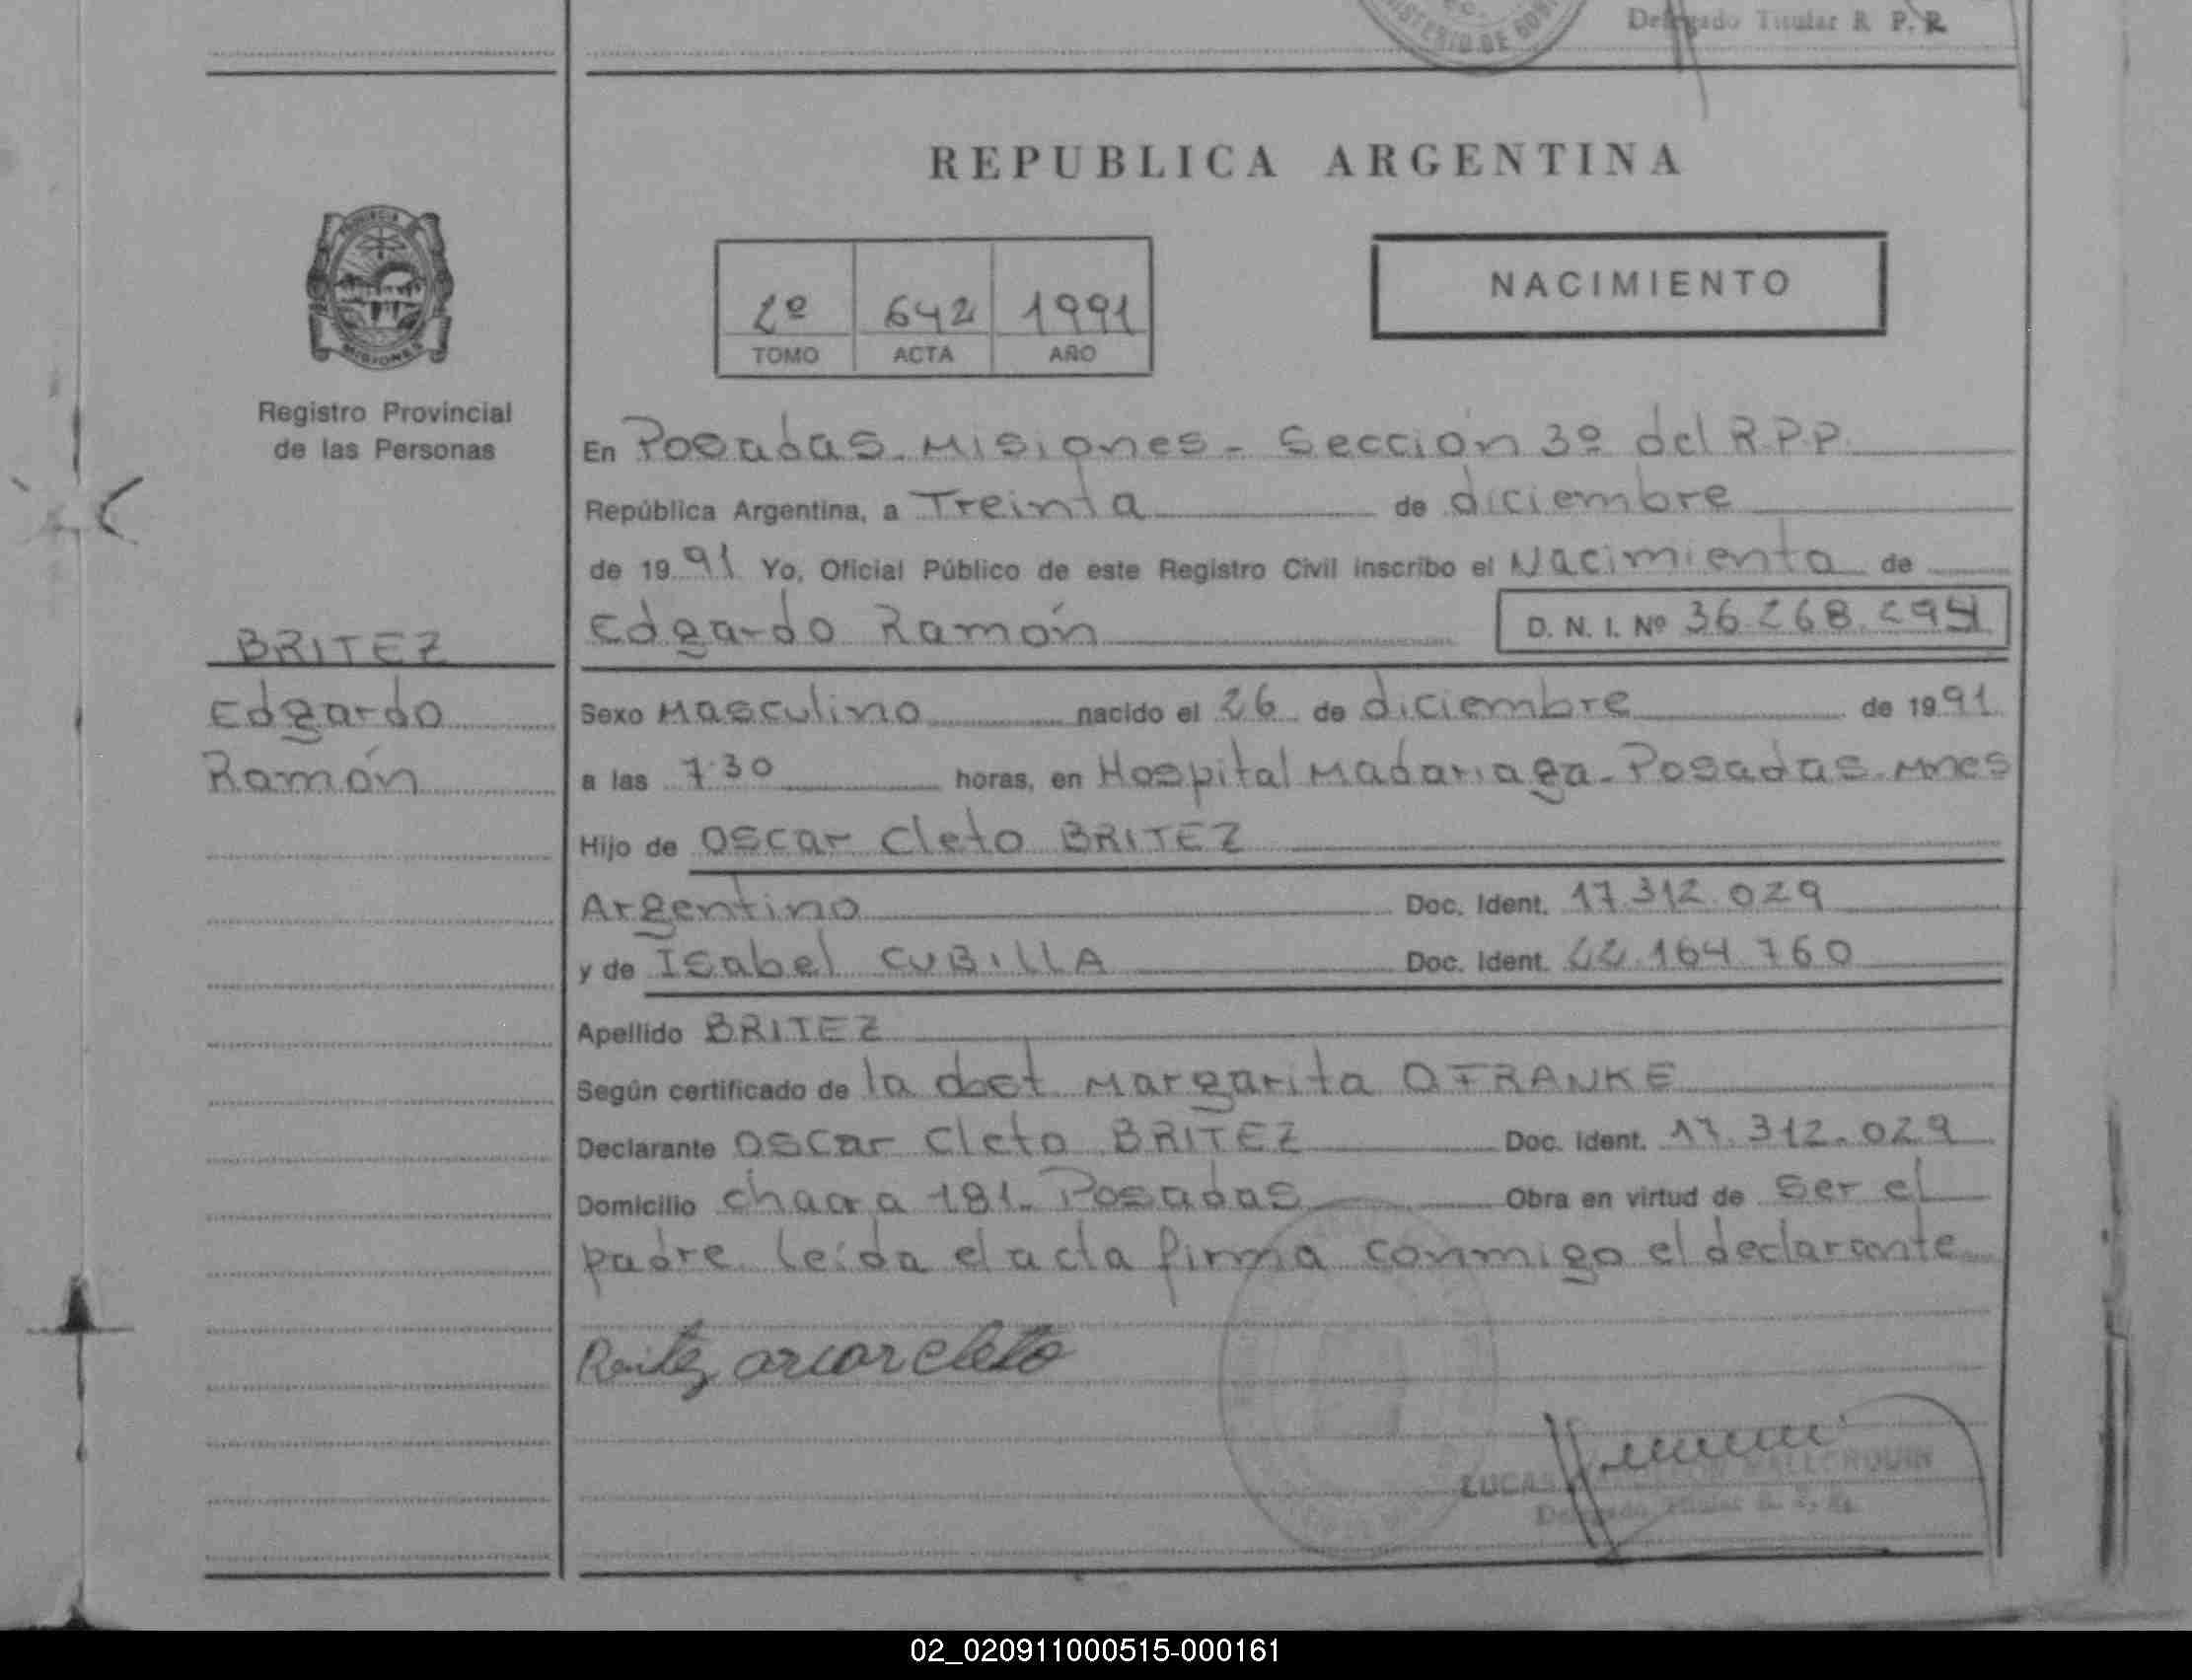 MINISTERIO DE GOBI
Delegado Titular R. P. R
REPUBLICA ARGENTINA
PROVINCIA
MISIONES
2º 642 1991
TOMO ACTA AÑO
NACIMIENTO
Registro Provincial
de las Personas
En Posadas. Misiones - Sección 3º del R.P.P.
República Argentina, a Treinta de diciembre
de 1991 Yo, Oficial Público de este Registro Civil inscribo el Nacimiento de
Edgardo Ramón D. N. I. Nº 36.268.294
BRITEZ
Edgardo
Ramón
Sexo Masculino nacido el 26 de diciembre de 1991
a las 7.30 horas, en Hospital Madariaga - Posadas. Mnes
Hijo de Oscar Cleto BRITEZ
Argentino Doc. Ident. 17.312.029
y de Isabel CUBILLA Doc. Ident. 22.164.760
Apellido BRITEZ
Según certificado de la doct Margarita O FRANKE
Declarante Oscar Cleto BRITEZ Doc. Ident. 17.312.029
Domicilio chacra 181. Posadas Obra en virtud de Ser el
padre. leída el acta firma conmigo el declarante
Britez oscar cleto
LUCAS MALLORQUIN
Delegado Titular R. P. R.
02_020911000515-000161